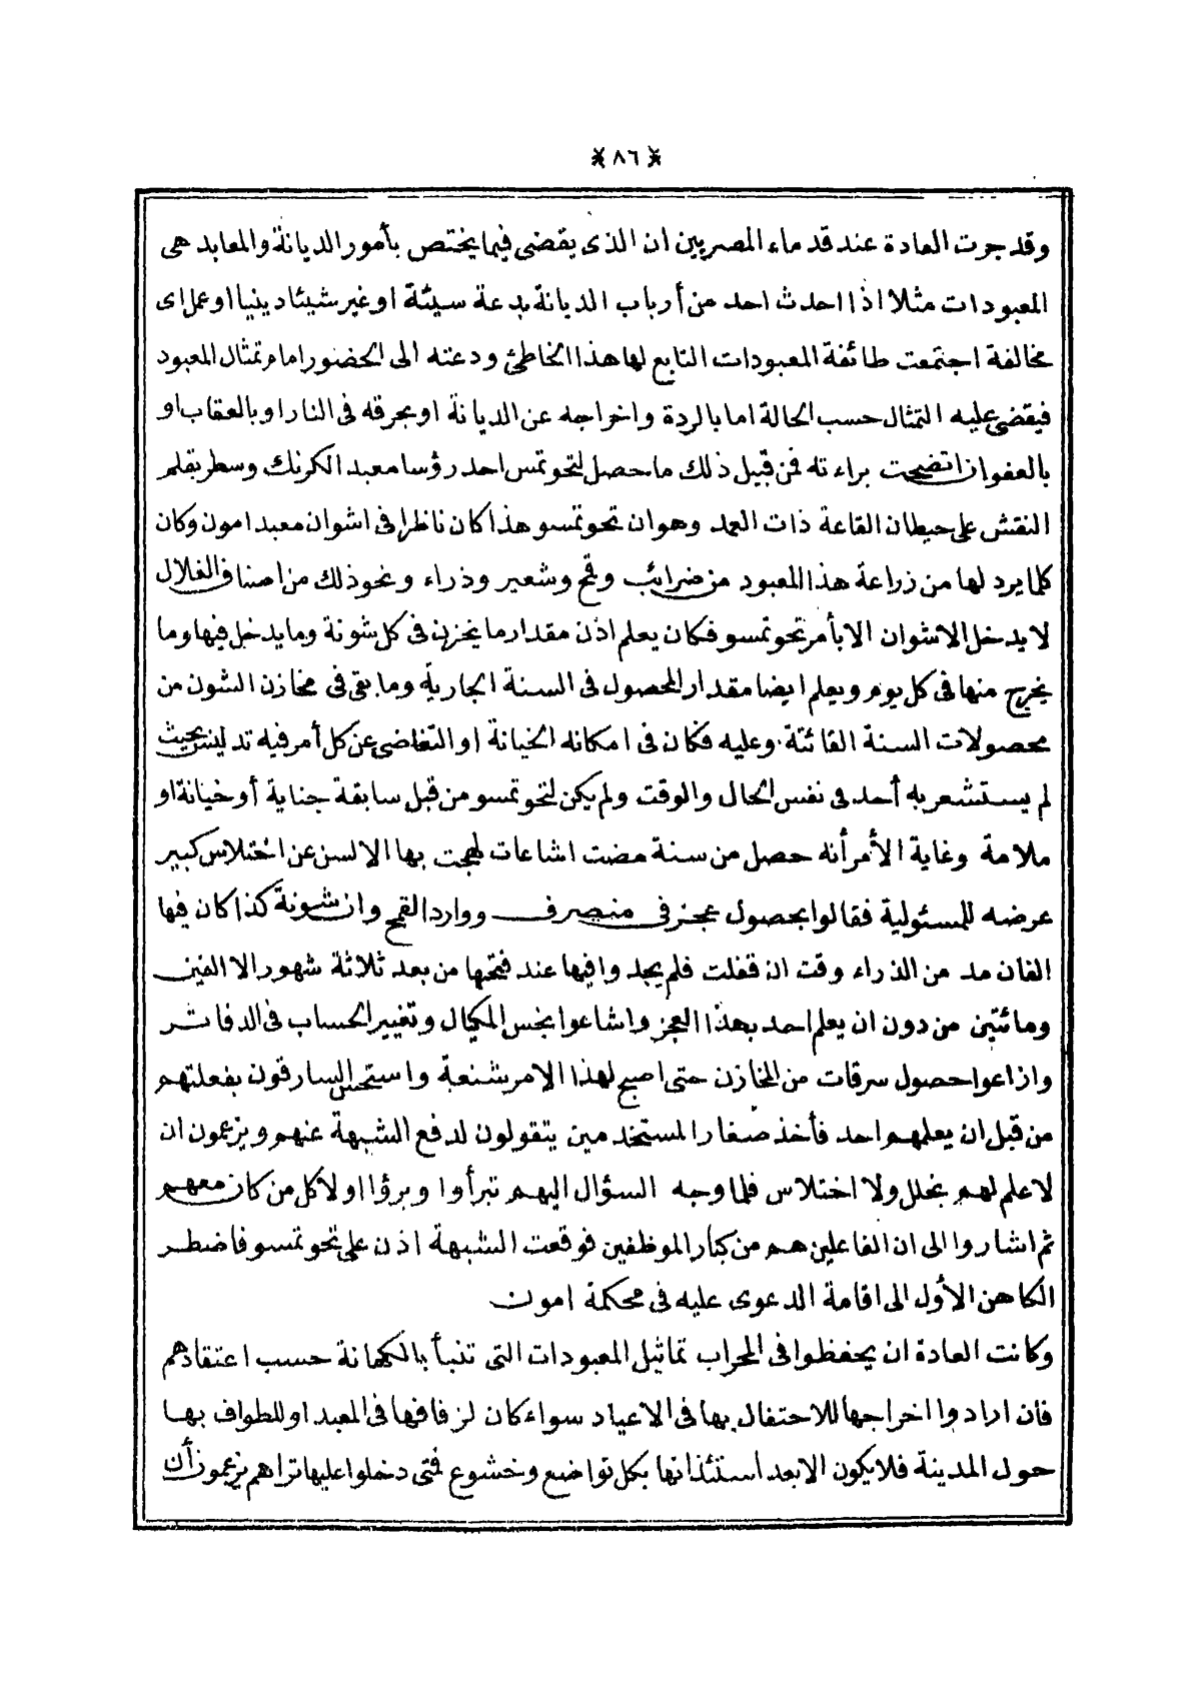 ﴿٨٦﴾
وقد جرت العادة عند قدماء المصريين ان الذى يقضى فيما يختص بأمور الديانة والمعابد هى
المعبودات مثلا اذا احدث احد من أرباب الديانة بدعة سيئة او غير شيئا دينيا او عمل اى
مخالفة اجتمعت طائفة المعبودات التابع لها هذا الخاطئ ودعته الى الحضور امام تمثال المعبود
فيقضى عليه التمثال حسب الحالة اما بالردة واخراجه عن الديانة او بحرقه فى النار او بالعقاب او
بالعفو ان اتضحت براءته فمن قبيل ذلك ما حصل لتحوتمس احد رؤسا معبد الكرنك وسطر بقلم
النقش على حيطان القاعة ذات العمد وهو ان تحوتمسو هذا كان ناظرا فى اشوان معبد امون وكان
كلما يرد لها من زراعة هذا المعبود من ضرائب وقمح وشعير وذراء ونحو ذلك من اصناف الغلال
لا يدخل الاشوان الا بأمر تحوتمسو فكان يعلم اذن مقدار ما يخزن فى كل شونة وما يدخل فيها وما
يخرج منها فى كل يوم ويعلم ايضا مقدار المحصول فى السنة الجارية وما بقى فى مخازن الشون من
محصولات السنة الفائتة وعليه فكان فى امكانه الخيانة او التغاضى عن كل أمر فيه تدليس بحيث
لم يستشعر به أحد فى نفس الحال والوقت ولم يكن لتحوتمسو من قبل سابقة جناية أو خيانة او
ملامة وغاية الأمر أنه حصل من سنة مضت اشاعات لهجت بها الالسن عن اختلاس كبير
عرضه للمسئولية فقالوا بحصول عجز فى منصرف ووارد القمح وان شونة كذا كان فيها
الفان مد من الذراء وقت ان قفلت فلم يجدوا فيها عند فتحها من بعد ثلاثة شهور الا الفين
ومائتين من دون ان يعلم احد بهذا العجز واشاعوا بخس المكيال وتغيير الحساب فى الدفاتر
واذاعوا حصول سرقات من المخازن حتى اصبح لهذا الامر شنعة واستحس السارقون بفعلتهم
من قبل ان يعلمهم احد فأخذ صغار المستخدمين يتقولون لدفع الشبهة عنهم ويزعمون ان
لا علم لهم بخلل ولا اختلاس فلما وجه السؤال اليهم تبرأوا وبرؤا اولا كل من كان معهم
ثم اشاروا الى ان الفاعلين هم من كبار الموظفين فوقعت الشبهة اذن على تحوتمسو فاضطر
الكاهن الأول الى اقامة الدعوى عليه فى محكمة امون
وكانت العادة ان يحفظوا فى المحراب تماثيل المعبودات التى تنبأ بالكهانة حسب اعتقادهم
فان ارادوا اخراجها للاحتفال بها فى الاعياد سواء كان لزفافها فى المعبد او للطواف بها
حول المدينة فلا يكون الا بعد استئذانها بكل تواضع وخشوع فمتى دخلوا عليها تراهم يزعمون أن